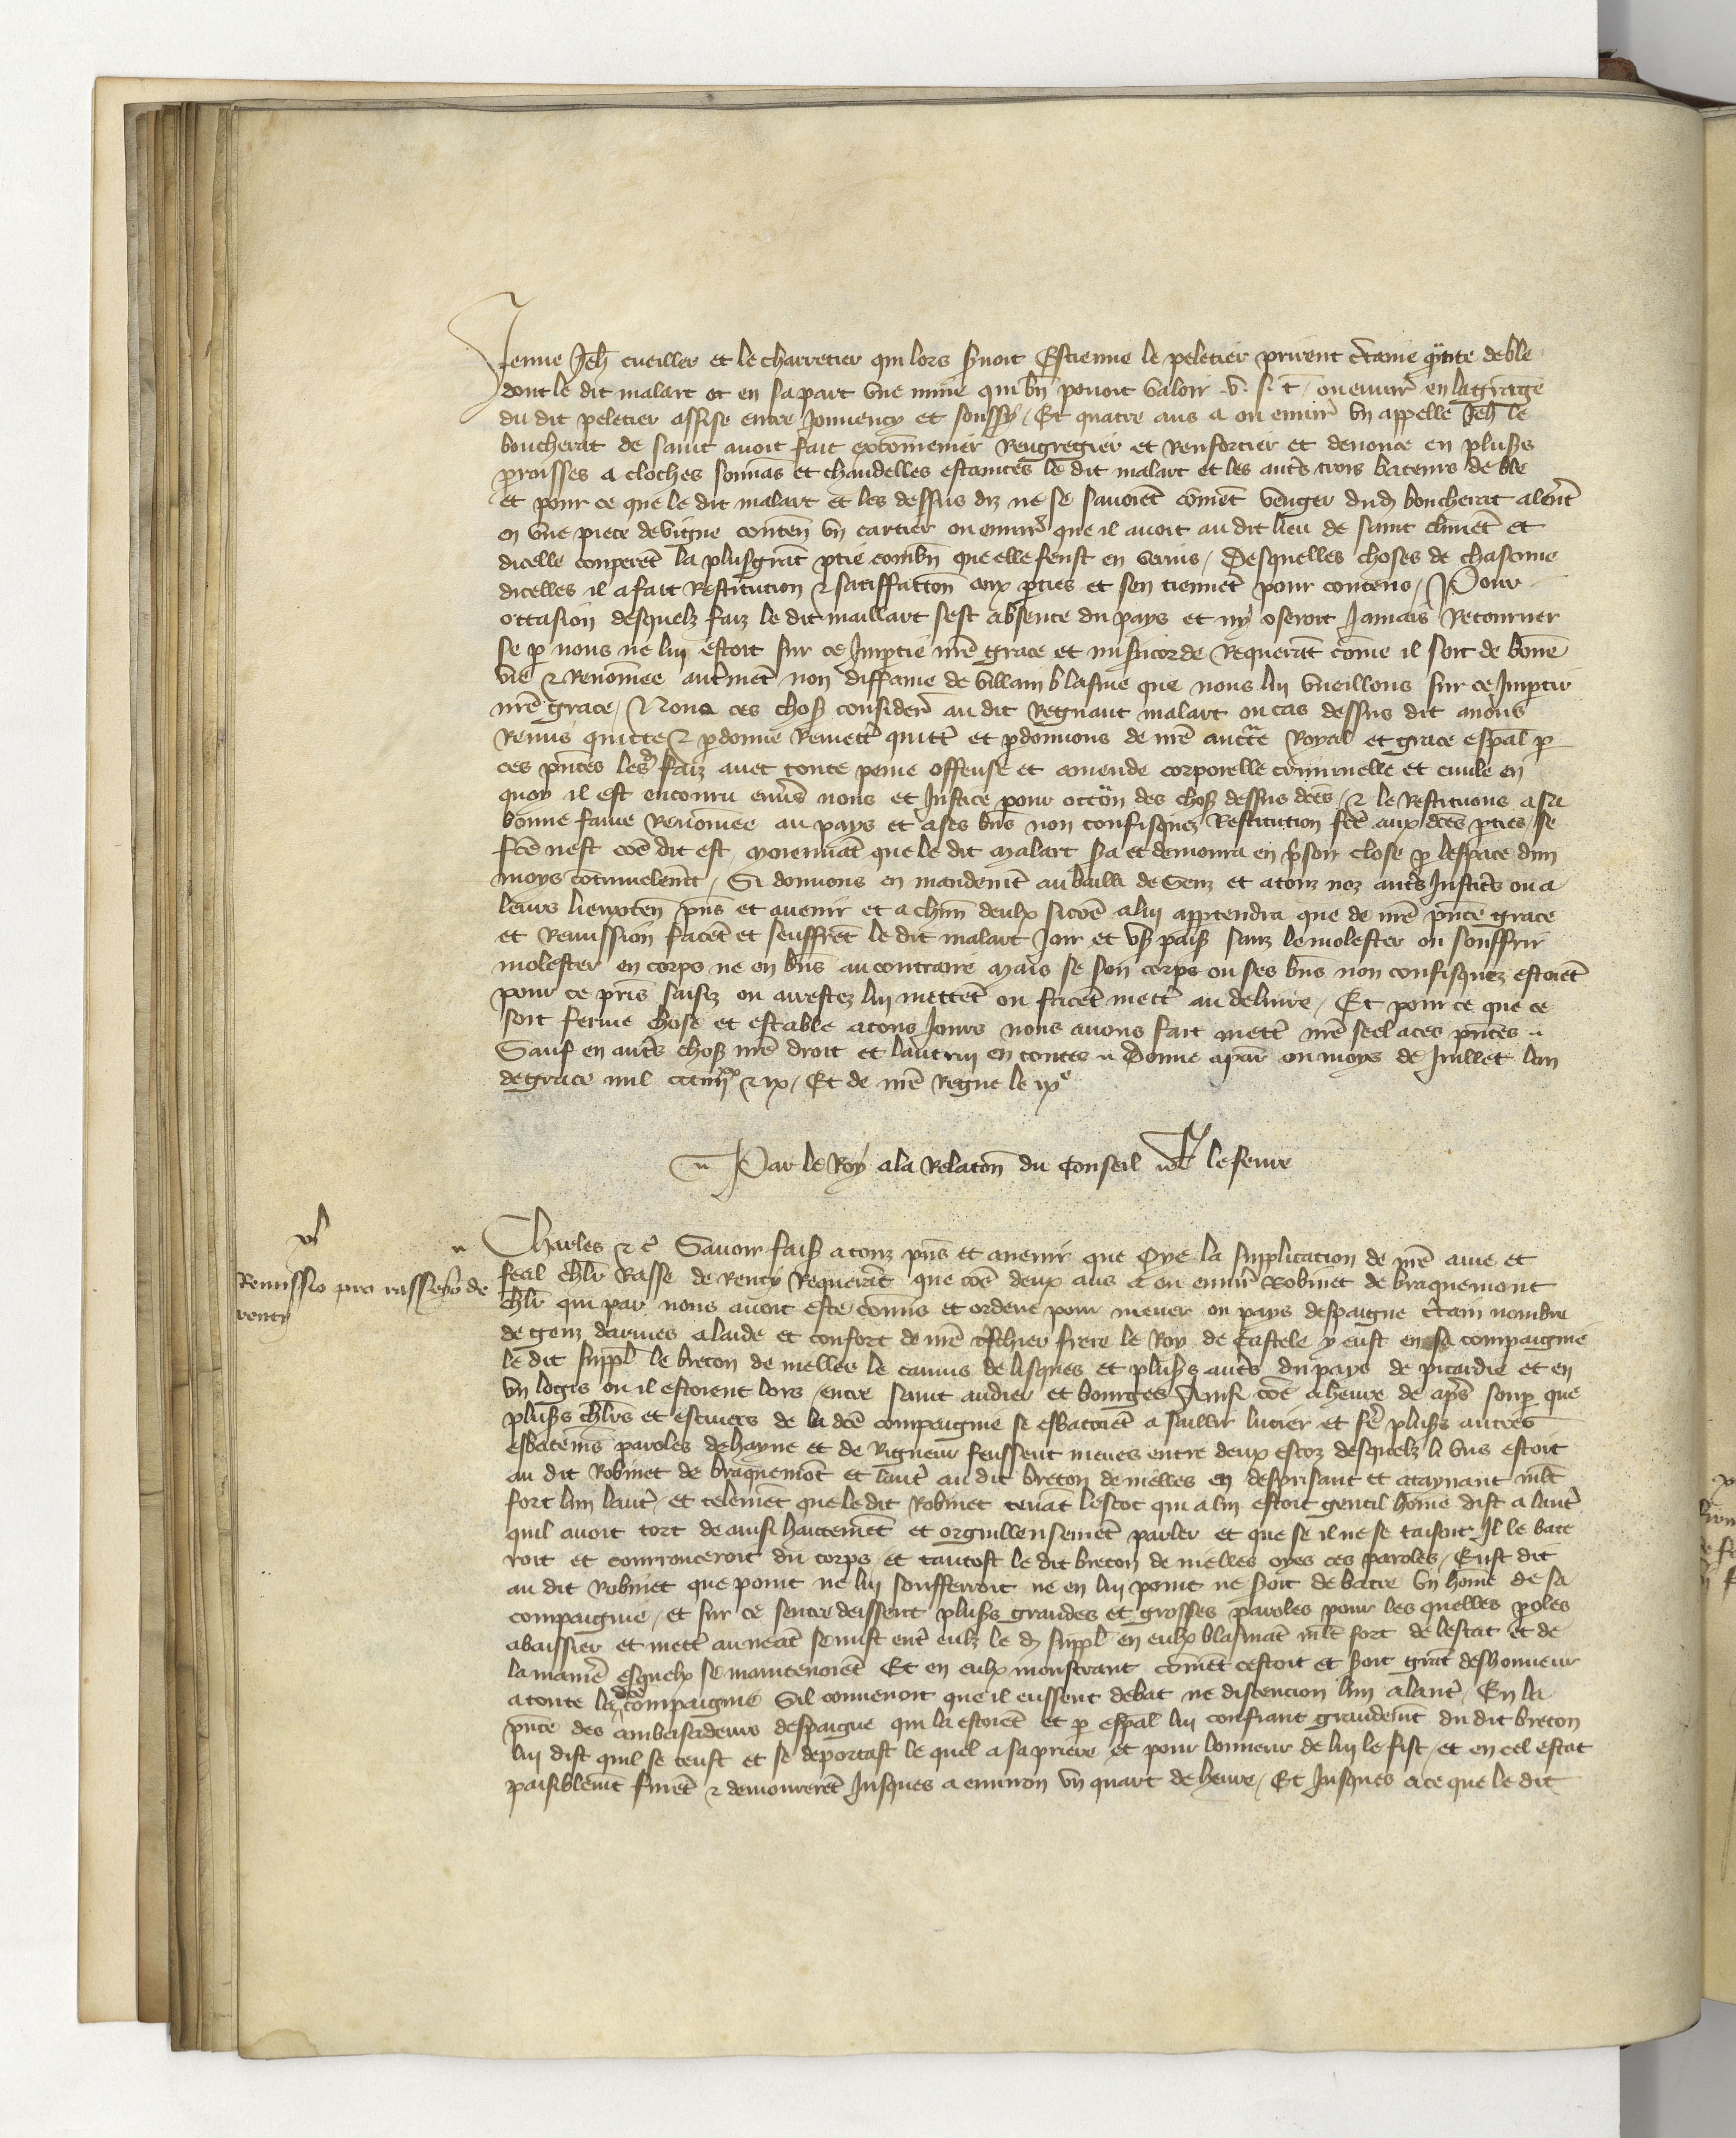 Jenne Jeh̄ cueiller et le charretier qui lors s̄uoit Estienne le peletier prirent c̄taine q̄ntite de ble
dont le dit malart ot en sa part vne mine qui bn̄ pouoit valoir v. s. t. ou enuir̄ en la grāge
du dit peletier assise entre Jonuency et soussy / Et quatre ans a ou enuir̄ vn appelle Jeh̄ le
boucherat de saint auoit fait excōmenier Rengregier et Renforcier et denonce en plus̄s
p̄roisses a cloches sonnās et chandelles estaintes le dit malart et les aut̄s trois bateurs de ble
et pour ce que le dit malart et les dessus diz ne se sauoiēt cōmēt venger dud boucherat alerēt
en vne piece de vigne conten̄ vn cartier ou enuir̄ que il auoit au dit lieu de saint climēt et
dicelle couperēt la plus grāt p̄tie combn̄ que elle feust en verius / Desquelles choses de chascune
dicelles il a fait Restitucion & satiffaccōn aux p̄ties et sen tiennēt pour contens / Pour
occasion desquelz faiz le dit maillart sest absente du pays et ny oseroit Jamais Retourner
se p̄ nous ne lui estoit sur ce Imp̄tie nr̄e grace et mis̄icorde Requerāt cōme il soit de bōne
vie & Renōmee aut̄mēt non diffame de villain blasme que nous lui vueillons sur ce Imp̄tir
nr̄e grace / Nous ces chos̄ consider̄ au dit Regnaut malart ou cas dessus dit auons
Remis quitte & p̄donne Remett̄ quitt̄ et p̄donnons de nr̄e auctt̄e Royal et grace esp̄al p̄
ces p̄ntes les d̄ faiz auec toute peine offense et amende corporelle criminelle et ciuile en
quoy il est encouru enūs nous et Justice pour occōn des chos̄ dessus dc̄es / & le Restituons a sa
bonne fame Renōmee au pays et a ses bn̄s non confisquez Restitucion fc̄e aux dc̄es p̄ties / se
fc̄e nest cōe dit est moiennāt que le dit malart s̄a et demoura en p̄son close p̄ lespace dun
moys continuelemēt / Si donnons en mandemt̄ au bailli de Senz et a touz noz aut̄s Justic̄s ou a
leurs lieuxten̄ p̄ns et auenir et a chūn deulx si cōe a lui app̄tendra que de nr̄e p̄nte grace
et Remission facēt et seuffrēt le dit malart Joir et vs̄ paisb̄ sanz le molester ou souffrir
molester en corps ne en bn̄s au contraire mais se son corps ou ses bn̄s non confisquez estoiēt
pour ce pris saisiz ou arrestez lui mettēt ou facēt mett̄ au deliure / Et pour ce que ce
soit ferme chose et estable a tous Jours nous auons fait mett̄ nr̄e seel a ces p̄ntes
Sauf en aut̄s chos̄ nr̄e droit et lautrui en toutes Donne a par̄ ou moys de Juillet lan
de grace mil ccc iiij xx & ix / Et de nr̄e Regne le ix e
Par le Roy a la Relacōn du Conseil lefeure
Charles & c̄ Sauoir fais̄ a touz p̄ns et auenir que Oye la supplicacion de nr̄e ame et
feal ch̄lr Rasse de Renty Requerāt que cōe deux ans a ou enuir̄ Robinet de braquemont
ch̄lr qui par nous auoit este cōmis et ordene pour mener ou pays despaigne c̄tain nombre
de genz darmes a laide et confort de nr̄e t̄schier frere le Roy de Castele y eust en sa compaignie
le dit suppl̄ le breton de nielles le camus de lisques et plus̄s aut̄s du pays de picardie et en
vn logis ou il estoient lors entre saint audier et bourges Ainsi cōe a heure de ap̄s soup̄ que
plus̄s ch̄lrs et escuiers de la dc̄e compaignie se esbatoiēt a saillir lucier et fē plus̄s autres
esbatemēs paroles de hayne et de Rigueur feussent meues entre deux escoz desquelz li vns estoit
au dit Robinet de braquemōt et laut̄ au dit breton de nielles en desprisant et ataynant ml̄t
fort lun laut̄ / et telemēt que le dit Robinet tenāt lescot qui a lui estoit gentil hōme dist a laut̄
quil auoit tort de ainsi hautemēt et orguilleusemēt parler et que se il ne se taisoit Il le bate
roit et courrouceroit du corps / et tantost le dit breton de nielles oyes ces paroles / Eust dit
au dit Robinet que point ne lui soufferroit ne en lui point ne s̄oit de batre vn hōme de sa
compaignie / et sur ce sentredeissent plus̄s grandes et grosses paroles pour les quelles p̄oles
abaissier et mett̄ au neāt se mist ent̄ eulz le d suppl̄ en eulx blasmāt ml̄t fort de lestat et de
la manie᷒e esquelx se maintenoiēt Et en eulx monstrant cōmēt cestoit et s̄oit grāt deshonneur
a toute la dc̄e compaignie Sil conuenoit que il eussent debat ne discencion lun a laut̄ / En la
p̄nce des ambasadeurs despaigne qui la estoiēt et p̄ esp̄al lui confiant grandemt̄ du dit breton
lui dist quil se teust et se deportast le quel a sa priere et pour lonneur de lui le fist / et en cel estat
paisiblemt̄ furēt & demourerēt Jusques a enuiron vn quart de heure / Et Jusques a ce que le dit
Remissio pro rasse de
renty